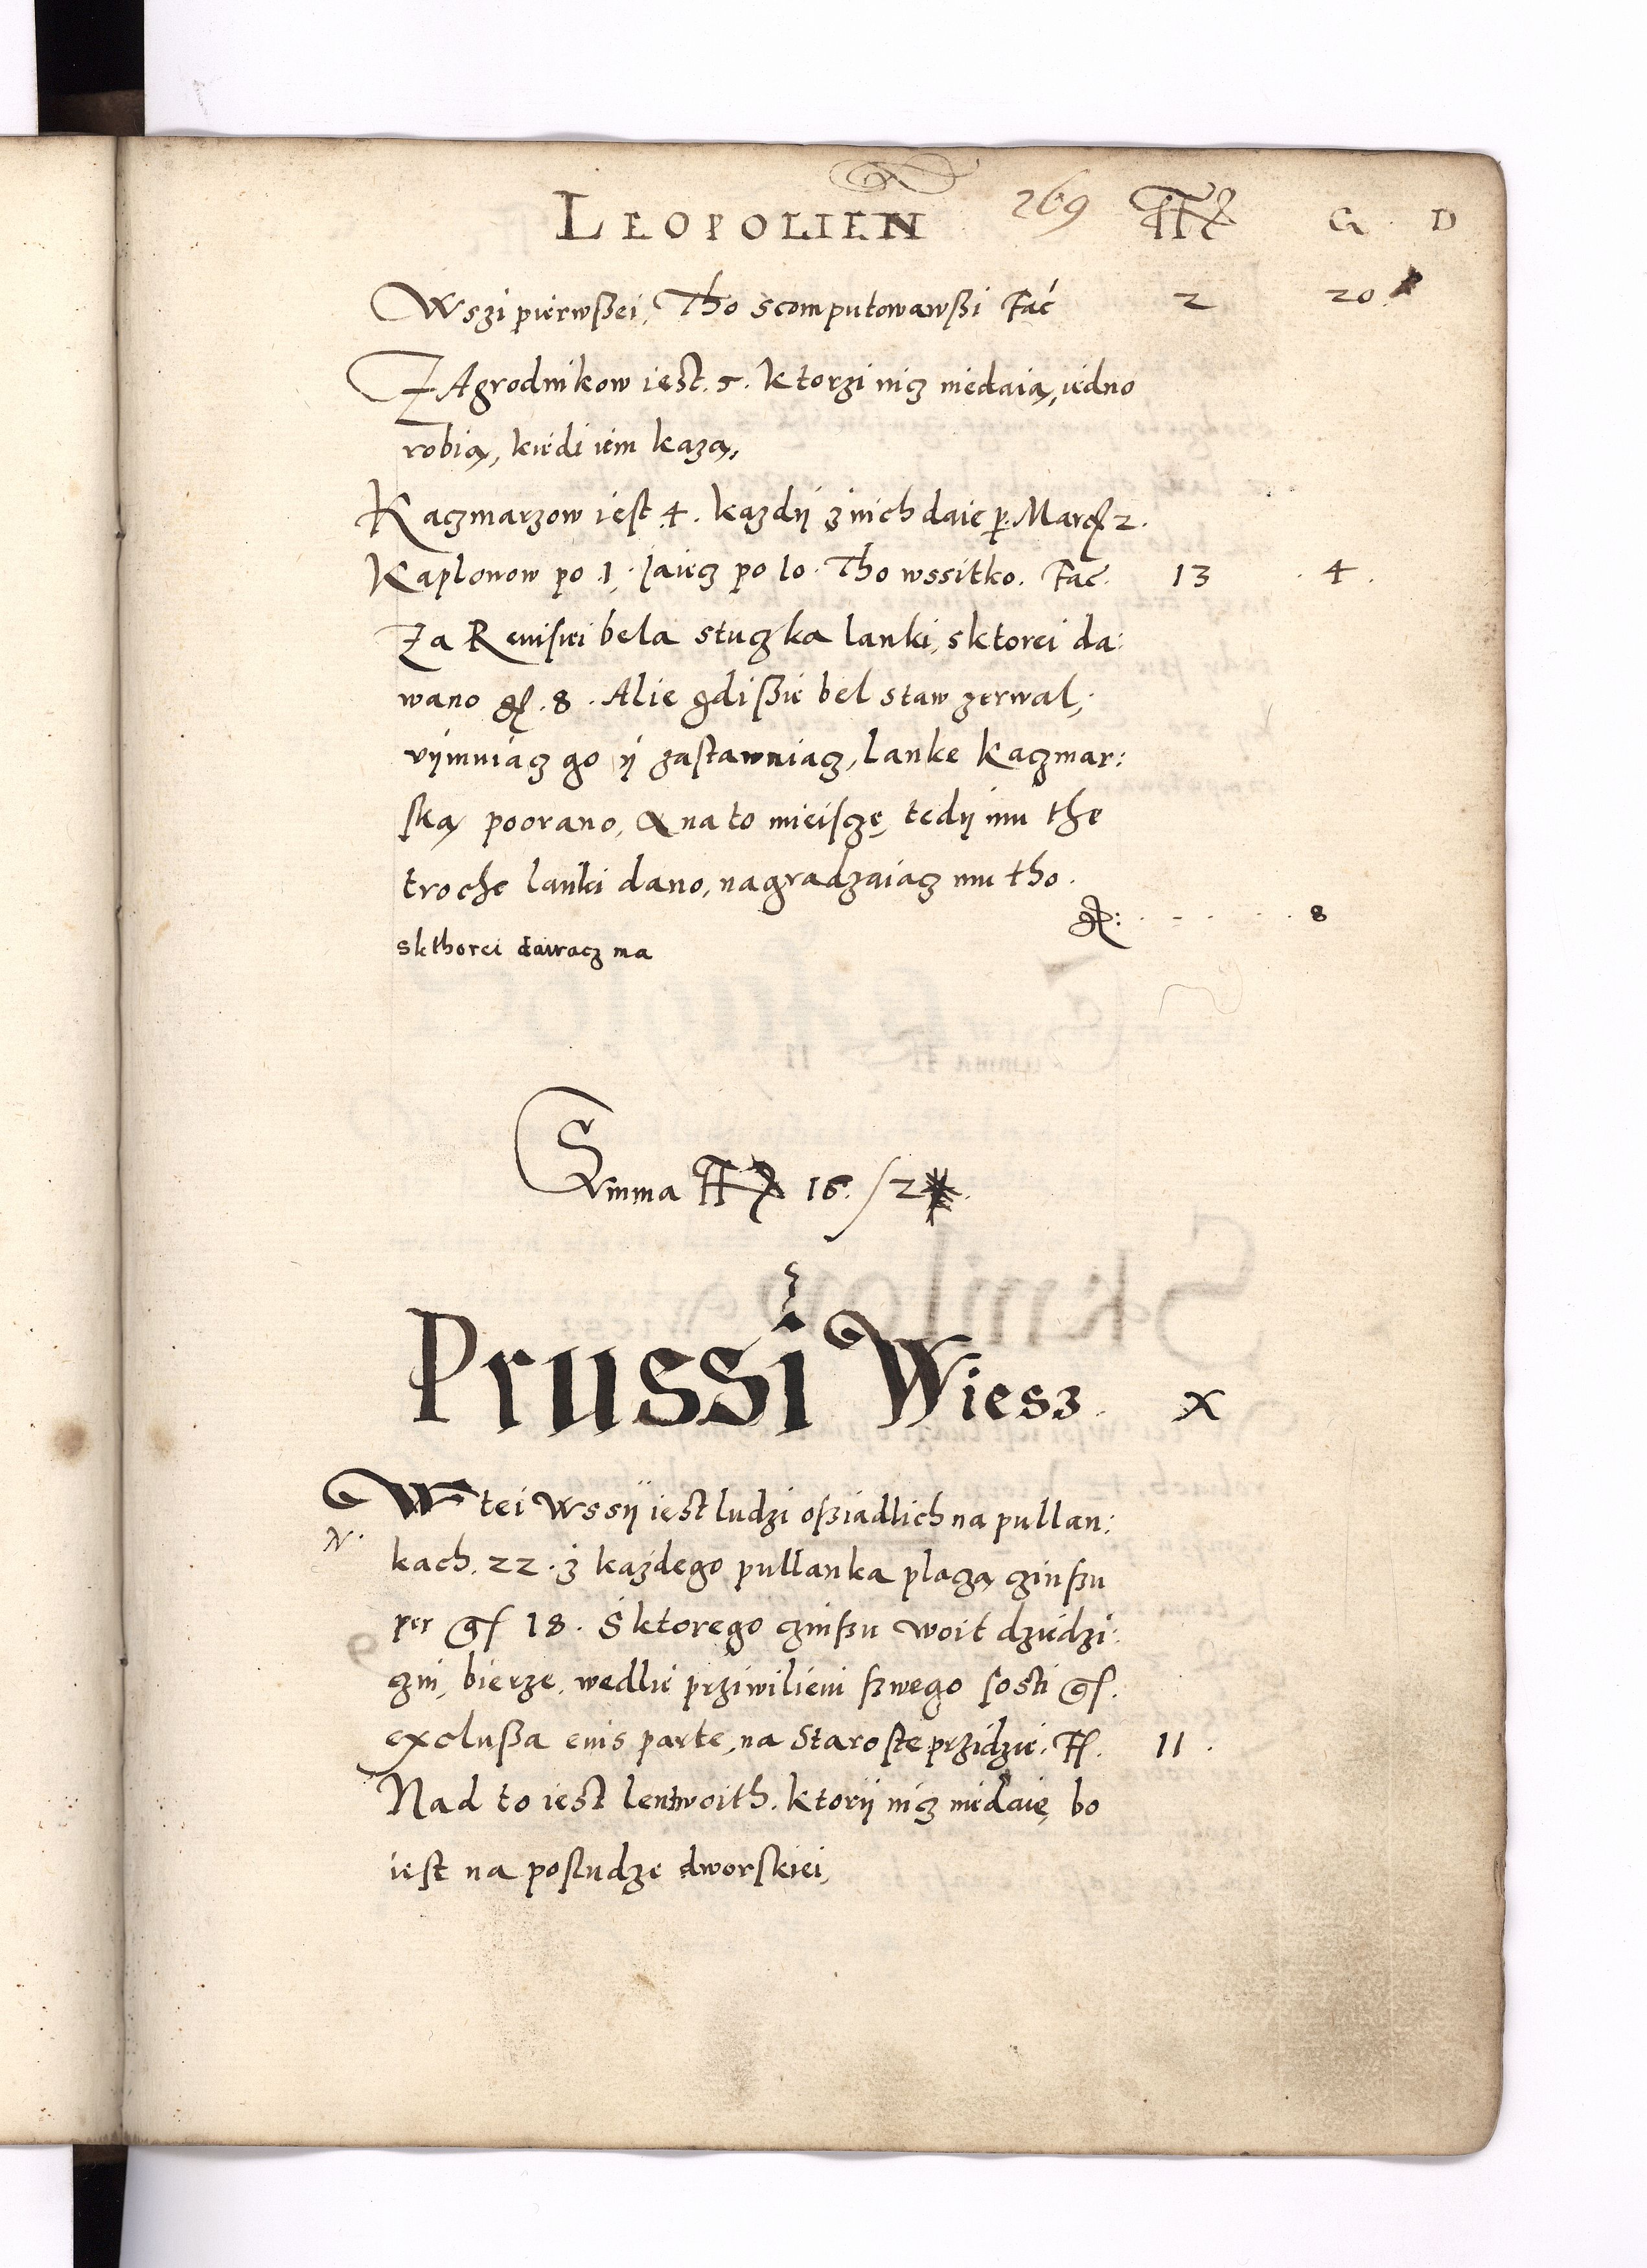 LEOPOLIEN 269 G D
Wszi pierwßei, Tho scomputowawßi Fac 2 20
ZAgrodnikow iest. 5. ktorzi nicz niedaią, iedno
robią, kiedi iim kazą,
Kaczmarzow iest 4. kazdij z nich daie p. Marc 2.
Kaplonow po 1, Jaiecz po 10. Tho wssitko. Fac. 13 4.
Za Reuisiei bela stuczka lanki, sktorei da:
wano g. 8. Alie gdi ßie bel staw zerwal,
vijmuiącz go ij zastawuiacz, lanke kaczmar:
ską poorano, & na to mieiscze, tedij mu the
troche lanki dano, nagradzaiacz mu tho.
g: 8
skthorei dawacz ma
Summa 16 / 2
Prussi Wiesz. x
W tei Wssij iest ludzi oßiadlich na pullan:
N.
kach. 22. z kazdego pullanka placzą czinßu
per g 18. Sktorego czinßu woit dziedzi:
czni, bierze, wedlie prziwilieiu szwego sosti g.
exclußa eius parte, na Staroste przidzie. F. 11.
Nad to iest lentwoith. ktorij nicz niedaie, bo
iest na posludze dworskiei,